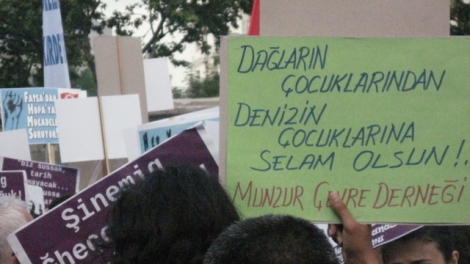 DAĞLARIN
ÇOCUKLARINDAN
DENİZİN
ÇOCUKLARINA
SELAM OLSUN!!
MUNZUR ÇEVRE DERNEĞİ
FATSA'DAN
HOPA'YA
MÜCADELE
SÜRÜYOR!
"Biz sussak,
tarih
susmayacak..."
Şinemiğ